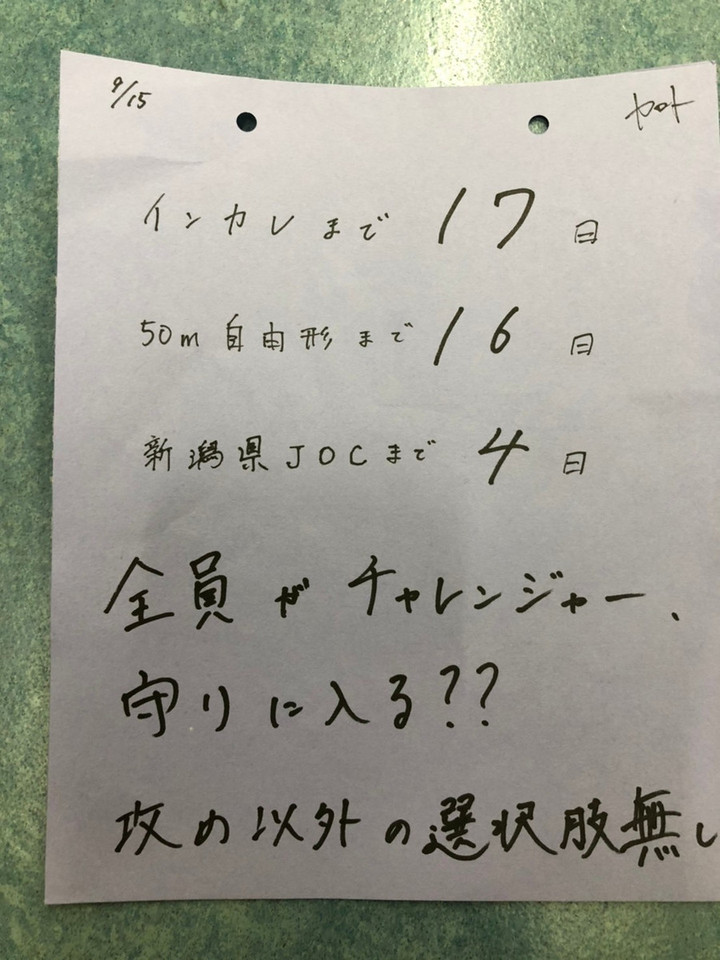 9/15
インカレまで 17 日
50m 自由形まで 16 日
新潟県JOCまで 4 日
全員がチャレンジャー、
守りに入る??
攻め以外の選択肢無し